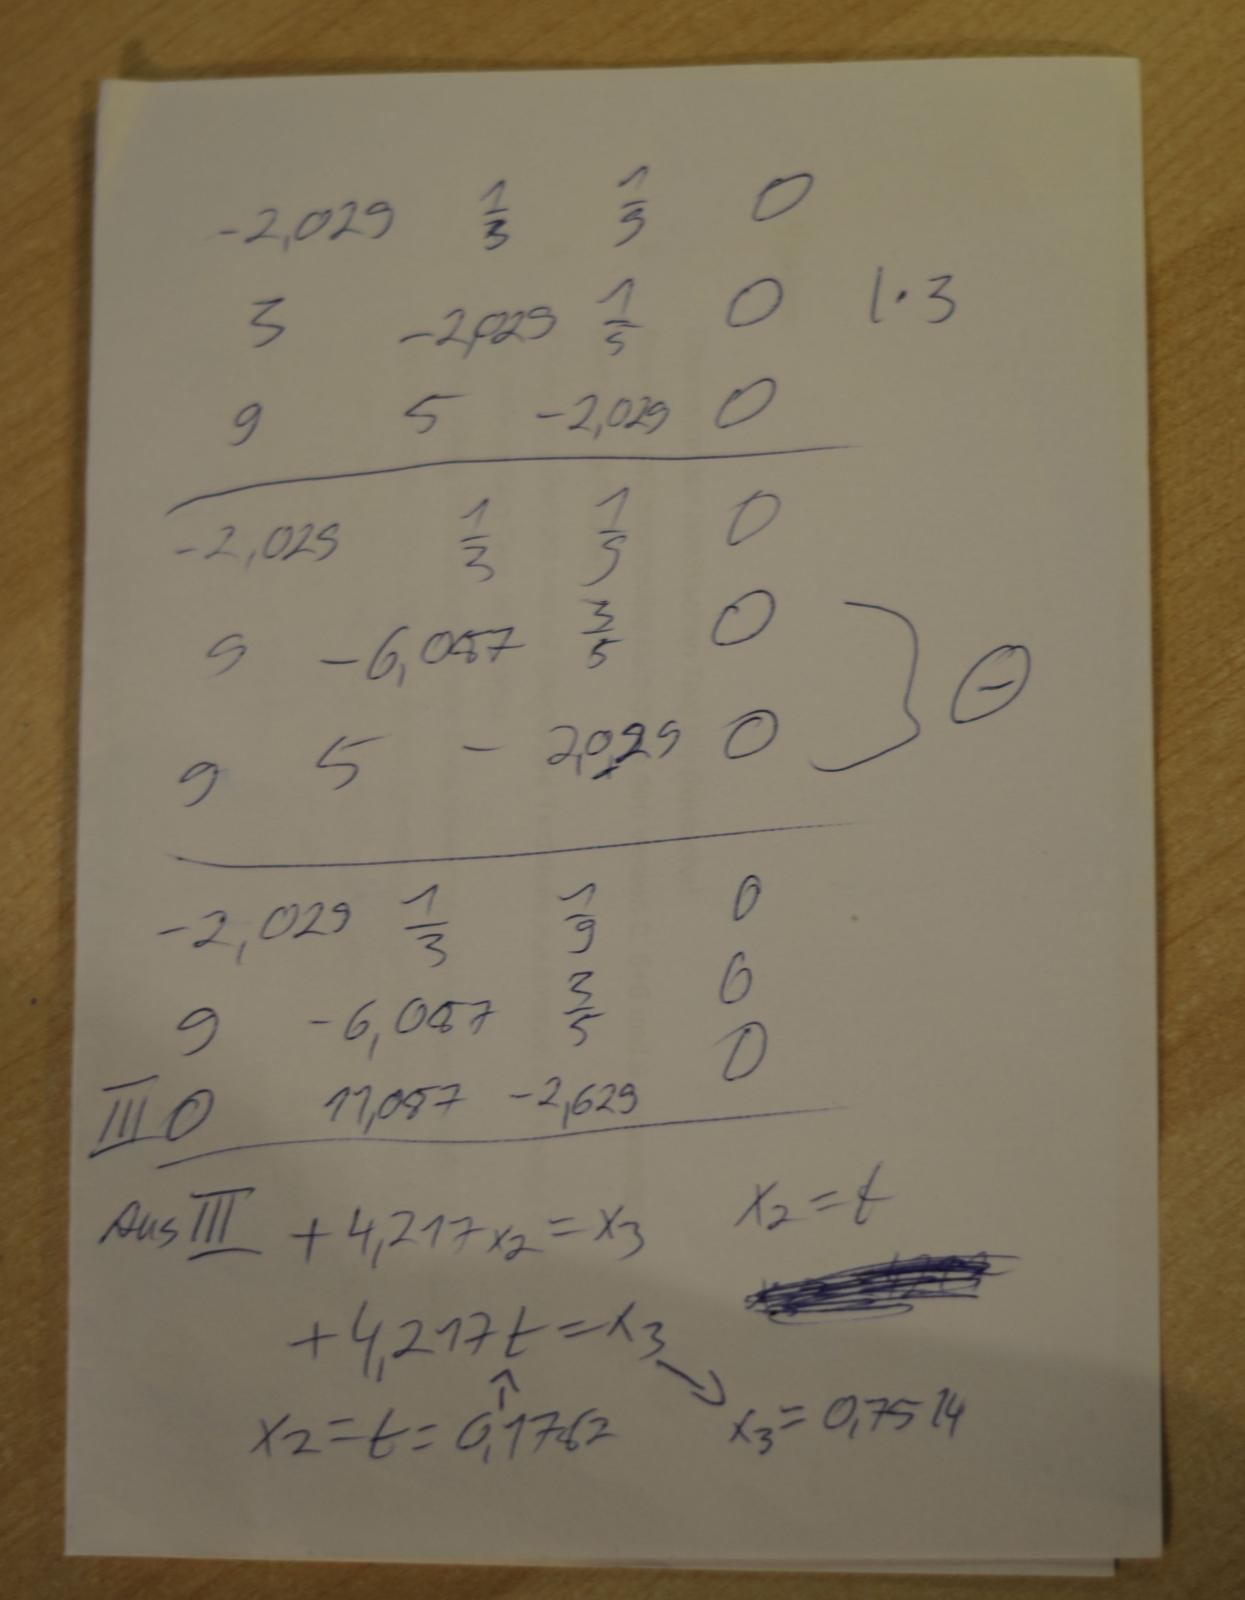 -2,029 1/3 1/9 0
3 -2,029 1/5 0 |·3
9 5 -2,029 0
-2,029 1/3 1/9 0
9 -6,087 3/5 0
9 5 - 2,029 0
-2,029 1/3 1/9 0
9 -6,087 3/5 0
III 0 11,087 -2,629 0
Aus III +4,217 x₂ = x₃ x₂ = t
+4,217 t = x₃
x₂ = t = 0,1782 x₃ = 0,7514